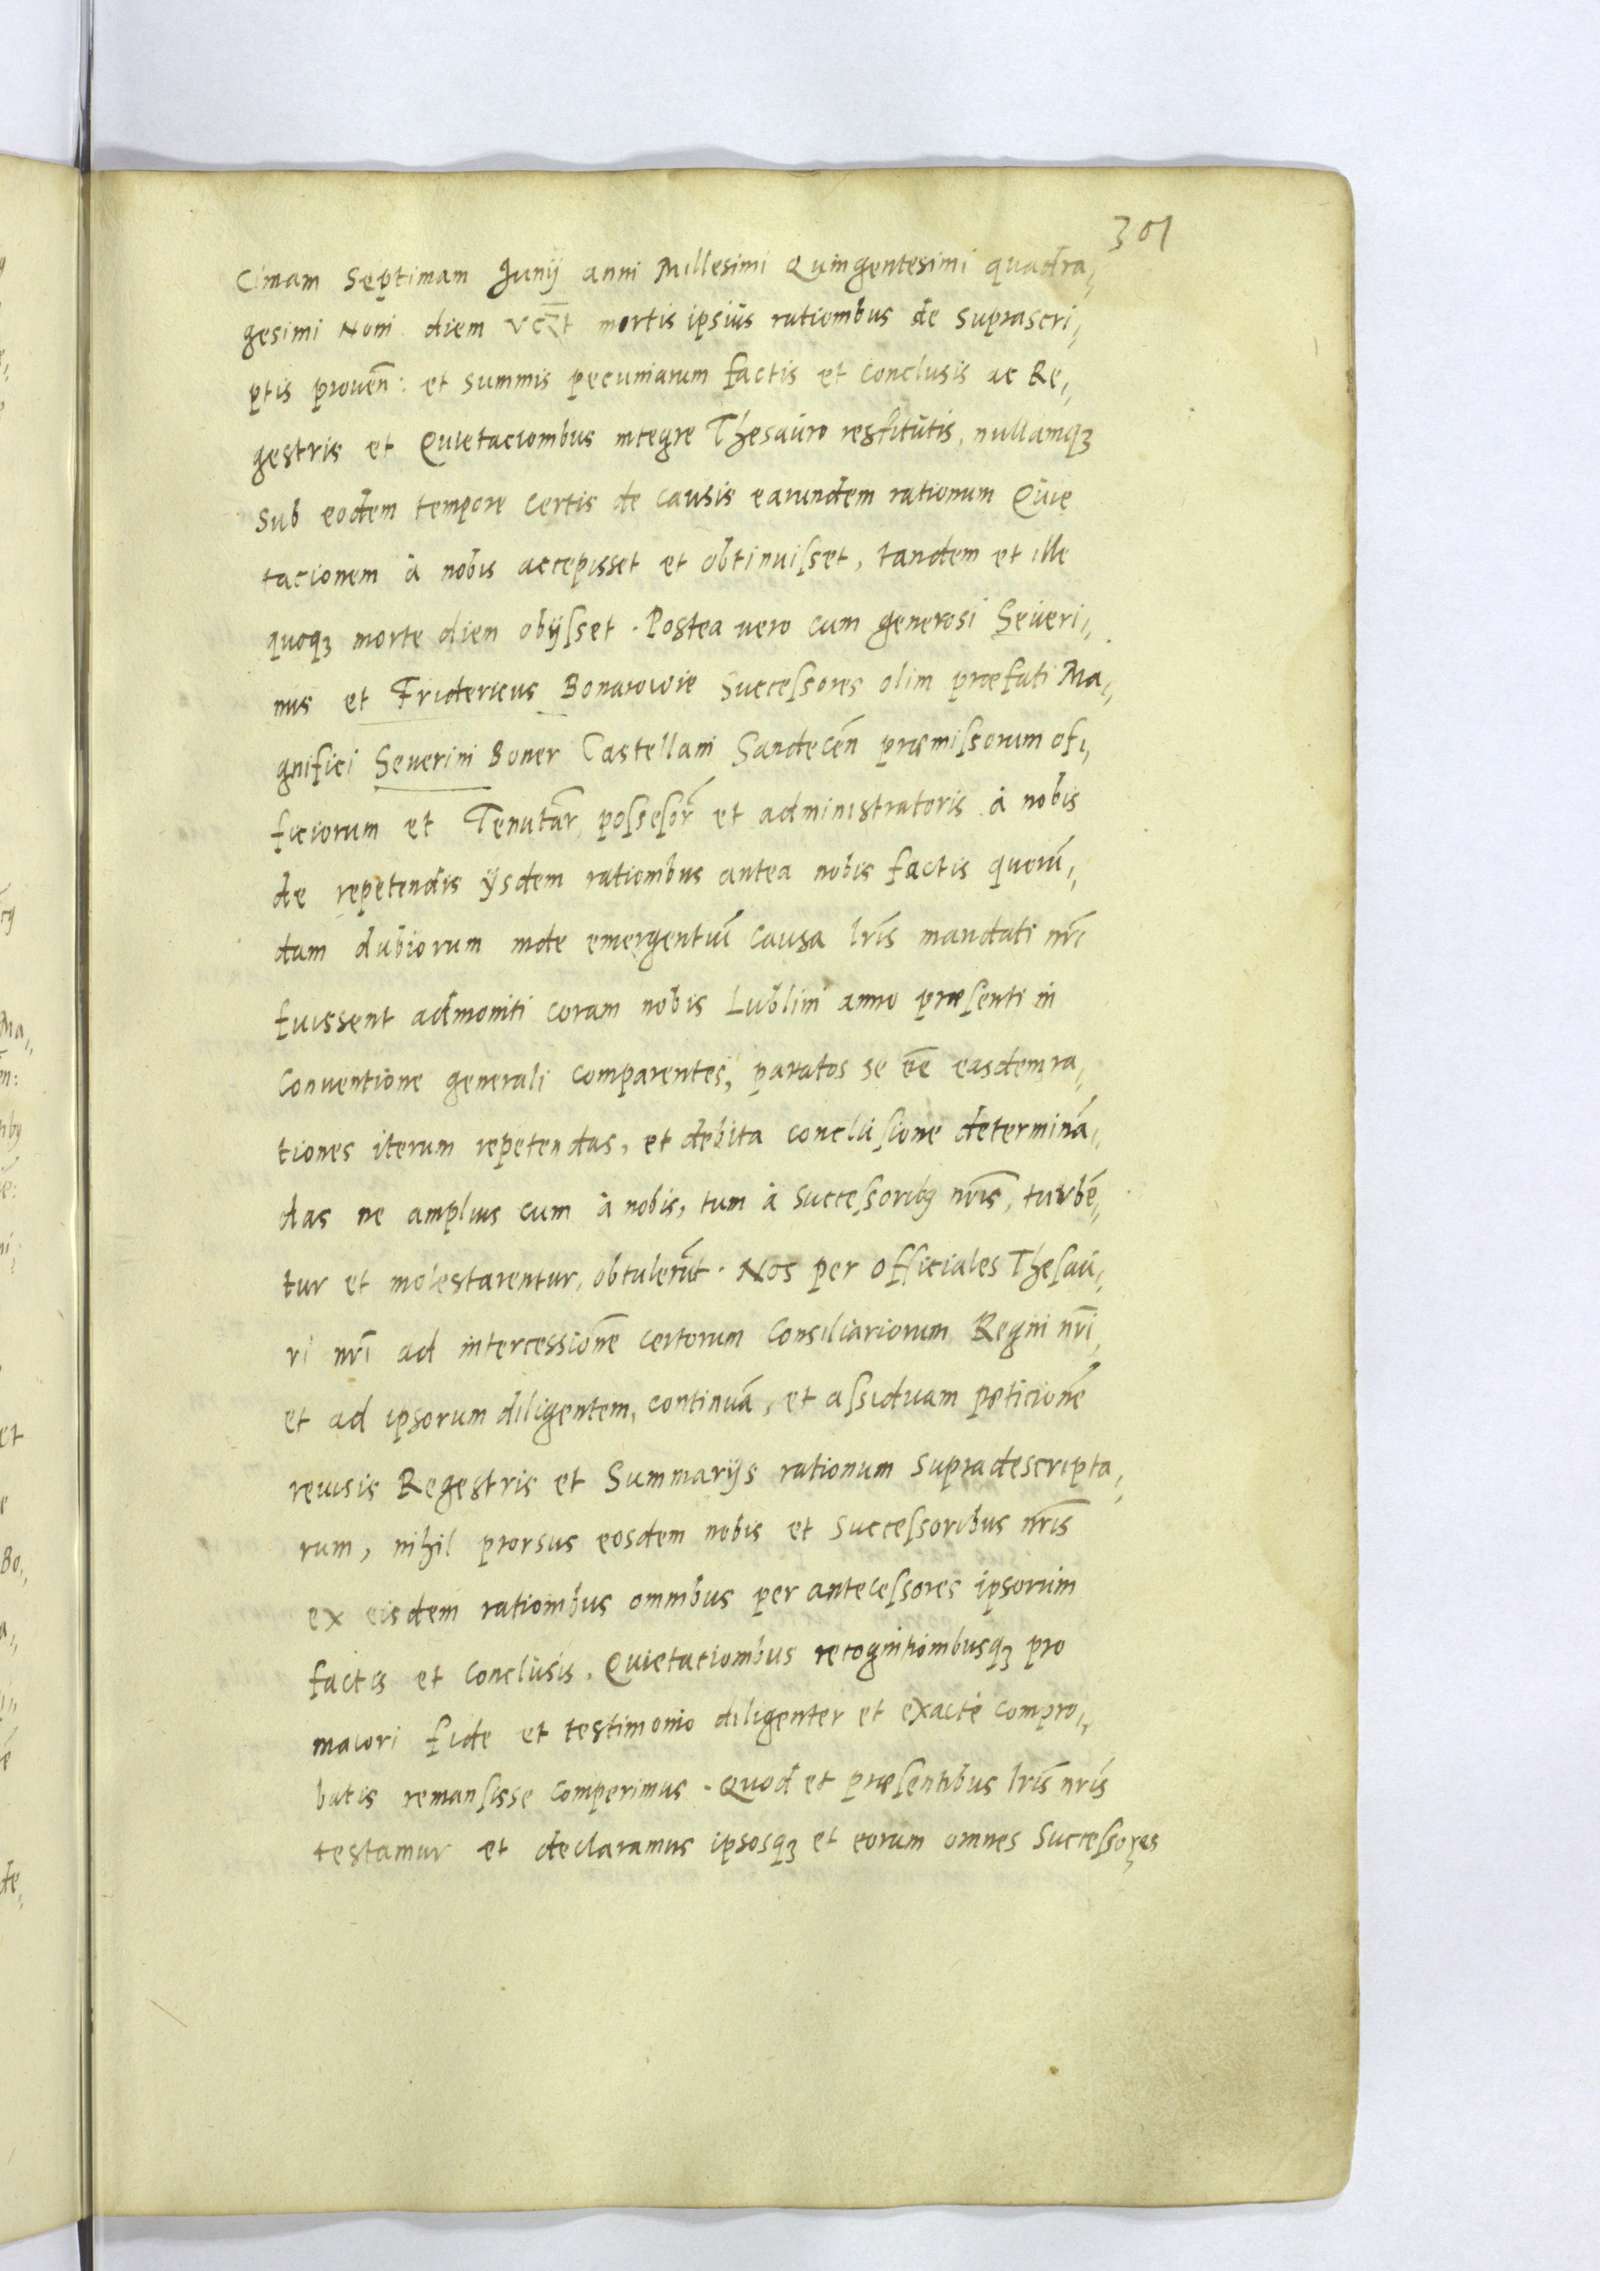 301
cimam septimam Junij anni Millesimi Quingentesimi quadra,,
gesimi Noni diem vczt mortis ipsius rationibus de suprascri,,
ptis prouen̄: et summis pecuniarum factis et conclusis ac Re,,
gestris et Quietacionibus integre Thesauro restitutis, nullamqꝫ
sub eodem tempore certis de causis earundem rationum Quie
tacionem à nobis accepisset et obtinuiſset, tandem et ille
quoqꝫ morte diem obijſset. Postea vero cum generosi Seueri,,
nus et Fridericus Bonarowie Succeſsores olim præfati Ma,,
gnifici Seuerini Boner Castellani Sandecen̄ præmiſsorum ofi,,
ficiorum et Tenutar̄ poſseſsor̄ et administratoris à nobis
de repetendis ijsdem rationibus antea nobis factis quorū,,
dam dubiorum inde emergentiū causa lrīs mandati nrī
fuissent admoniti coram nobis Lublini anno præſenti in
Conuentione generali comparentes, paratos se eē easdem ra,,
tiones iterum repetendas, et debita concluſione determinā,,
das ne amplius cum à nobis, tum à succeſsoribꝫ nrīs, turbē,,
tur et molestarentur, obtulerūt. Nos per officiales Theſau,,
ri nrī ad intercessionē certorum Consiliariorum Regni nrī,
et ad ipsorum diligentem, continuā, et aſsiduam peticionē
reuisis Regestris et Summarijs rationum supradescripta,,
rum, nihil prorsus eosdem nobis et succeſsoribus nrīs
ex eisdem rationibus omnibus per anteceſsores ipsorum
factis et conclusis, Quietacionibus recognitionibusqꝫ pro
maiori fide et testimonio diligenter et exacte compro,,
batis remanſisse comperimus. Quod et præſentibus lrīs nrīs
testamur et declaramus ipsosqꝫ et eorum omnes succeſsores